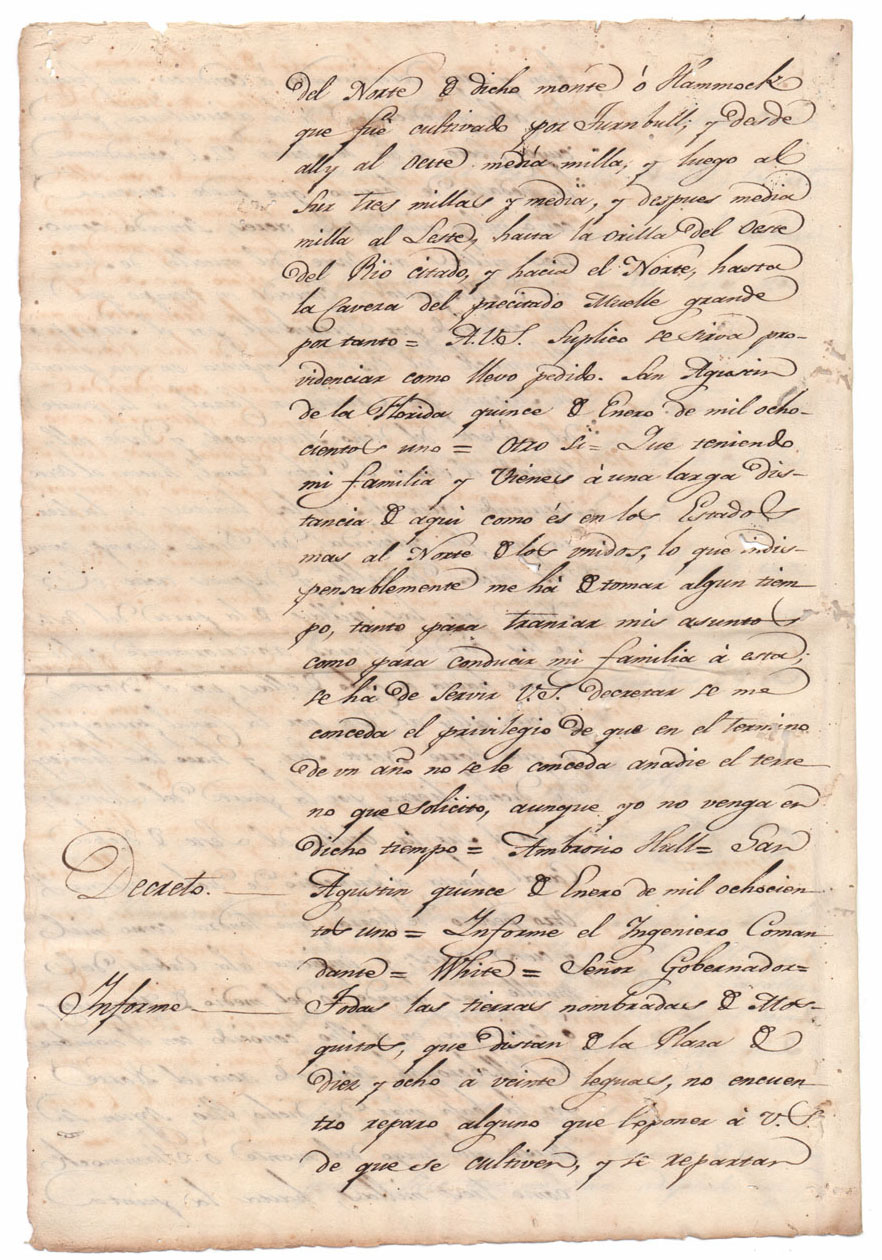 del Norte de dicho monte ó Hammock
que fué cultivado por Turnbull; y desde
ally al Oeste media milla, y luego al
Sur tres millas y media, y despues media
milla al Leste, hasta la orilla del Oeste
del Rio citado, y hacia el Norte, hasta
la Cavera del precitado Muelle grande
por tanto = A.V.S. Suplico se sirva pro-
videnciar como llevo pedido. San Agustin
de la Florida quince de Enero de mil ocho-
cientos uno = Otro si = Que teniendo
mi familia y Vienes á una larga dis-
tancia de aqui como és en los Estados
mas al Norte de los unidos, lo que indis-
pensablemente me há de tomar algun tiem-
po, tanto para tranzar mis asuntos
como para conducir mi familia á esta;
se há de servir V.S. decretar se me
conceda el privilegio de que en el termino
de un año no se le conceda anadie el terre-
no que solicito, aunque yo no venga en
dicho tiempo = Ambrosio Hull = San
Decreto. Agustin quince de Enero de mil ochocien-
tos uno = Informe el Ingeniero Coman-
dante = White = Señor Gobernador =
Informe Todas las tierras nombradas de Mos-
quitos, que distan de la Plaza de
diez y ócho á veinte leguas, no encuen-
tro reparo alguno que exponer á V.S.
de que se cultiven, y se repartan